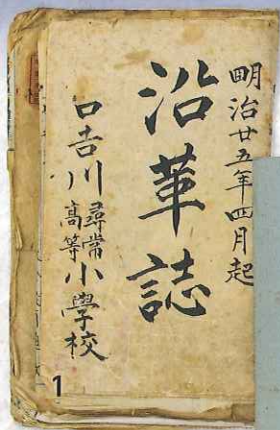 明治廿五年四月起
沿革誌
口吉川尋常高等小學校
1